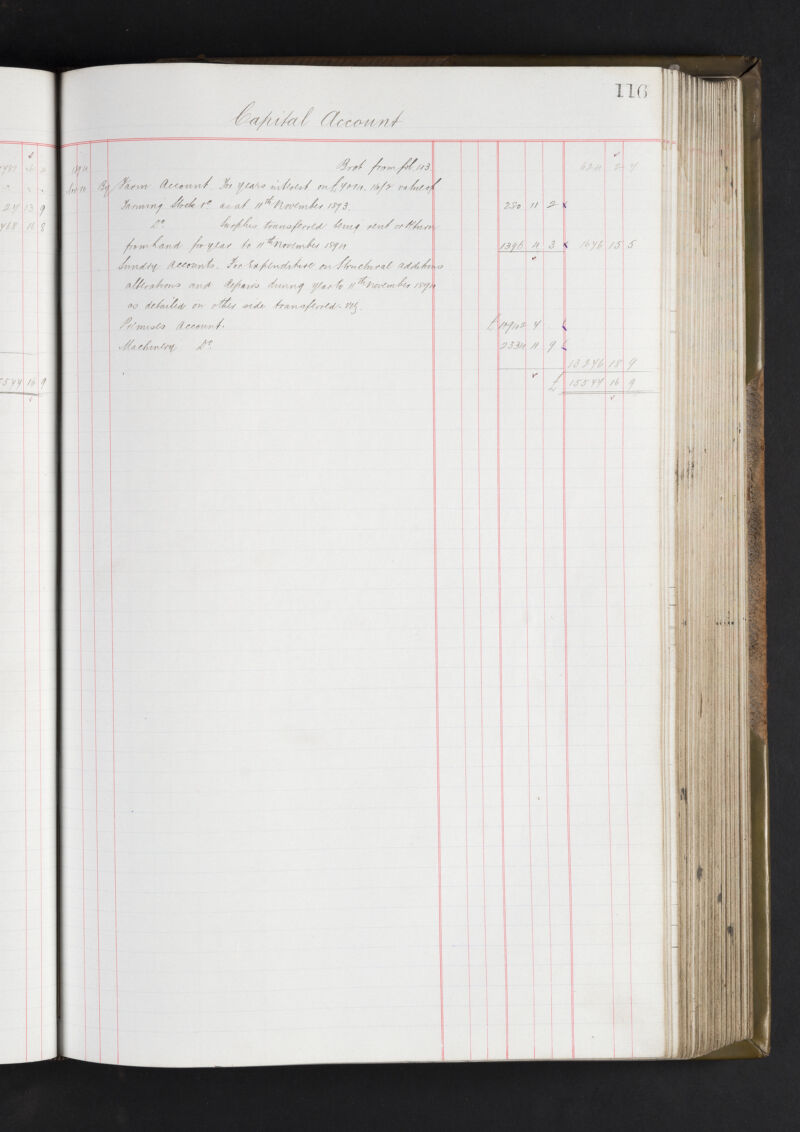 116
Capital Account
1874
Brot from fol. 113
624 2 7
Nov 11 By Farm Account. For years interest on £7014. value of
Farming Stock &c as at 11th November 1873.
280 11 2
Do Surplus transferred being rent or return
from Land for year to 11th November 1874
1396 4 3 1676 15 5
Sundry Accounts. For Expenditure on Structural additions
alterations and repairs during year to 11th November 1874
as detailed on other side transferred. viz.
Premises Account.
£10942 7 .
Machinery Do
2334 11 9
13276 18 9
£ 15577 16 9